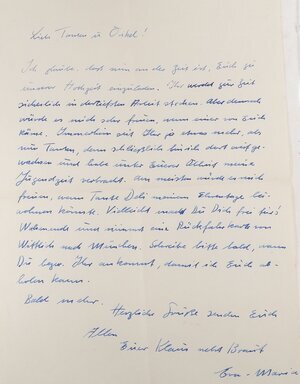 Liebe Tanten u. Onkel!
Ich glaube, dass nun an der Zeit ist, Euch zu
unserer Hochzeit einzuladen. Ihr werdet zur Zeit
sicherlich in der Arbeit stecken. Aber dennoch
würde es mich sehr freuen, wenn einer von Euch
käme. Immerhin seid Ihr ja etwas mehr, als
nur Tanten, denn schliesslich bin ich dort aufge-
wachsen und habe unter Eurer Obhut meine
Jugendzeit verbracht. Am meisten würde es mich
freuen, wenn Tante meinem Ehrentage bei-
wohnen könnte. Vielleicht machst Du Dich frei für's
Wochenende und nimmst eine Rückfahrkarte von
Wittlich nach München. Schreibe bitte bald, wann
Du bzw. Ihr ankommt, damit ich Euch ab-
holen kann.
Bald mehr.
Herzliche Grüße senden Euch
Allen
Euer Klaus nebst Braut
Eva-Maria